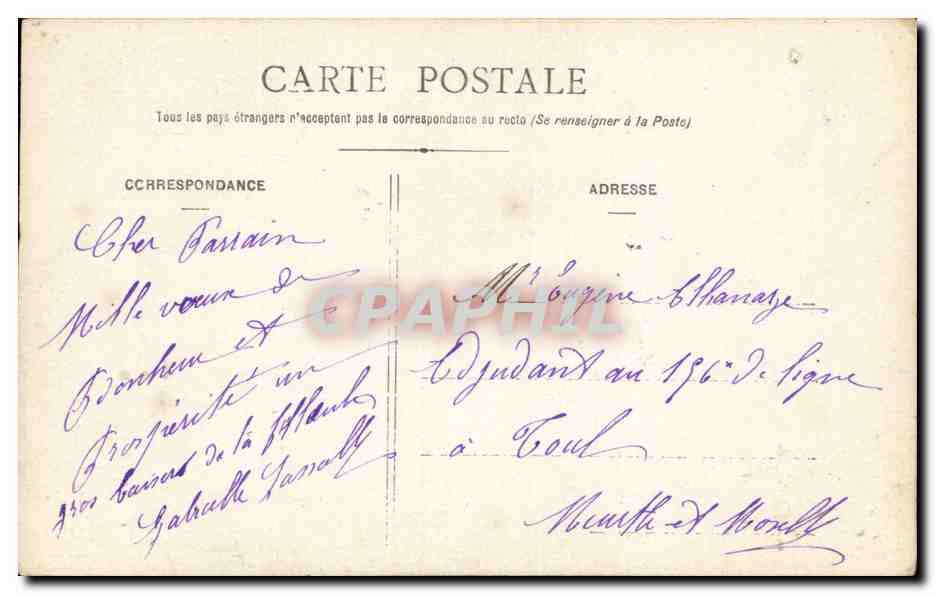 CARTE POSTALE
Tous les pays étrangers n'acceptent pas la correspondance au recto (Se renseigner à la Poste)
CORRESPONDANCE
ADRESSE
Cher Parrain
Mille vœux de
Bonheur et
Prospérité un
gros baisers de ta
Gabrielle
Mr Eugène
Adjudant au 156e de ligne
à Toul
Meurthe et Moselle
CPAPHIL